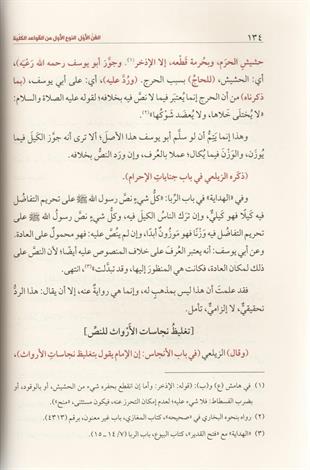 ١٣٤
الفن الأول، النوع الأول من القواعد الكلية
حشيشِ الحرَم، وبحُرمة قَطْعه، إلا الإذخر(١). وجوَّز أبو يوسف رحمه الله رَعْيَه)،
أي: الحشيش، (للحاجِّ) بسبب الحرج. (ورُدَّ عليه)، أي: على أبي يوسف، (بما
ذكرناه) من أن الحرج إنما يُعتبَر فيما لا نصَّ فيه بخلافه؛ لقوله عليه الصلاة والسلام:
«لا يُختَلى خَلاها، ولا يُعضَد شَوكُها»(٢).
وهذا إنما يَتِمُّ أن لو سلَّم أبو يوسف هذا الأصلَ؛ ألا ترى أنه جوَّز الكَيلَ فيما
يُوزَن، والوَزْنَ فيما يُكال؛ عملا بالعُرف، وإن ورَد النصُّ بخلافه.
(ذكَره الزيلعي في باب جنايات الإحرام).
وفي «الهداية» في باب الرِّبا: «وكلُّ شيءٍ نصَّ رسول الله ﷺ على تحريم التفاضُل
فيه كَيلًا فهو كَيليٌّ، وإن ترَك الناسُ الكيلَ فيه، وكلُّ شيءٍ نصَّ رسول الله ﷺ على
تحريم التفاضُل فيه وَزْنًا فهو مَوزونٌ أبدًا، وإن لم يَنُصَّ عليه: فهو محمولٌ على العادة.
وعن أبي يوسف: أنه يعتبر العُرفَ على خلاف المنصوص عليه أيضًا؛ لأن النصَّ على
ذلك لمكان العادة، فكانت هي المنظورَ إليها، وقد تبدَّلت»(٣)، انتهى.
فقد علمتَ أن هذا ليس بمذهبٍ له، وإنما هي روايةٌ عنه، إلا أن يقال: هذا الردُّ
تحقيقيٌّ، لا إلزاميٌّ، تأمل.
[تغليظُ نجاساتِ الأَرْواث للنصِّ]
(وقال) الزيلعي (في باب الأنجاس: إن الإمام يقول بتغليظ نجاساتِ الأرواث)،
(١) في هامش (ع) و(ب): (قوله: الإذخر: وأما إن انقطع بحفره شيء من الحشيش، أو بالوقود، أو
بضرب الفسطاط: فلا شيء عليه؛ لعدم إمكان التحرز عنه، فيكون مستثنى، «منح»).
(٢) رواه بنحوه البخاري في «صحيحه»، كتاب المغازي، باب غير معنون، برقم (٤٣١٣).
(٣) «الهداية» مع «فتح القدير»، كتاب البيوع، باب الربا (٧/ ١٤–١٥).